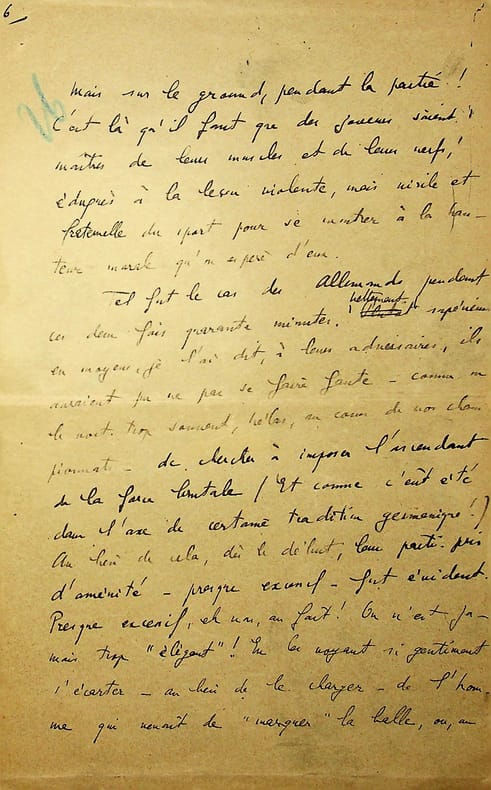 6
26
Mais sur le ground, pendant la partie !
C'est là qu'il faut que des joueurs soient
maîtres de leurs muscles et de leurs nerfs,
éduqués à la leçon violente, mais virile et
fraternelle du sport pour se montrer à la hau-
teur morale qu'on espère d'eux.
Tel fut le cas des Allemands pendant
ces deux fois quarante minutes. nettement supérieurs
en moyens, je l'ai dit, à leurs adversaires, ils
auraient pu ne pas se faire faute – comme on
le voit trop souvent, hélas, au cours de nos cham
pionnats – de chercher à imposer l'ascendant
de la force brutale (Et comme c'eût été
dans l'axe de certaine tradition germanique !)
Au lieu de cela, dès le début, leur parti-pris
d'aménité – presque excessif – fut évident.
Presque excessif, eh non, au fait ! On n'est ja-
mais trop "élégant" ! En les voyant si gentiment
s'écarter – au lieu de le charger – de l'hom-
me qui venait de "marquer" la balle, ou, au